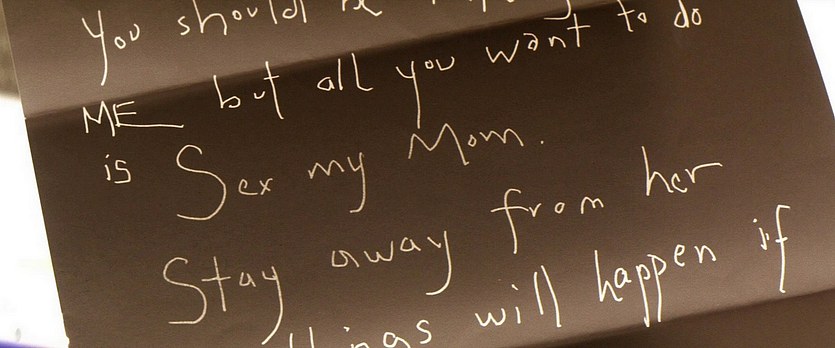 You should
ME but all you want to do
is Sex my Mom.
Stay away from her
will happen if